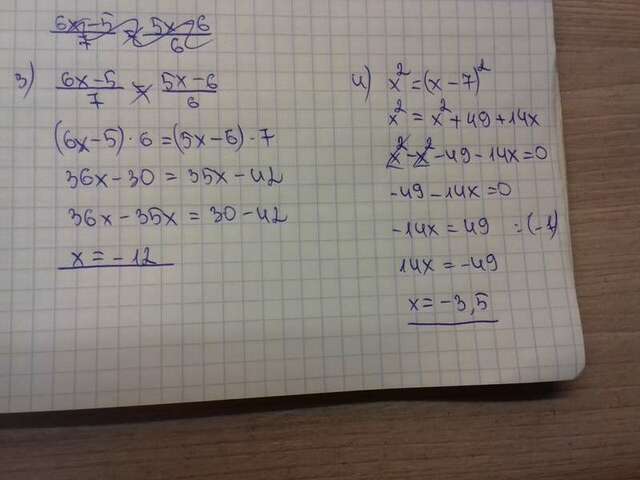 3) 6x-5/7 = 5x-6/6
(6x-5)·6=(5x-6)·7
36x-30=35x-42
36x-35x=30-42
x=-12
4) x²=(x-7)²
x²=x²+49+14x
x²-x²-49-14x=0
-49-14x=0
-14x=49 :(-1)
14x=-49
x=-3,5